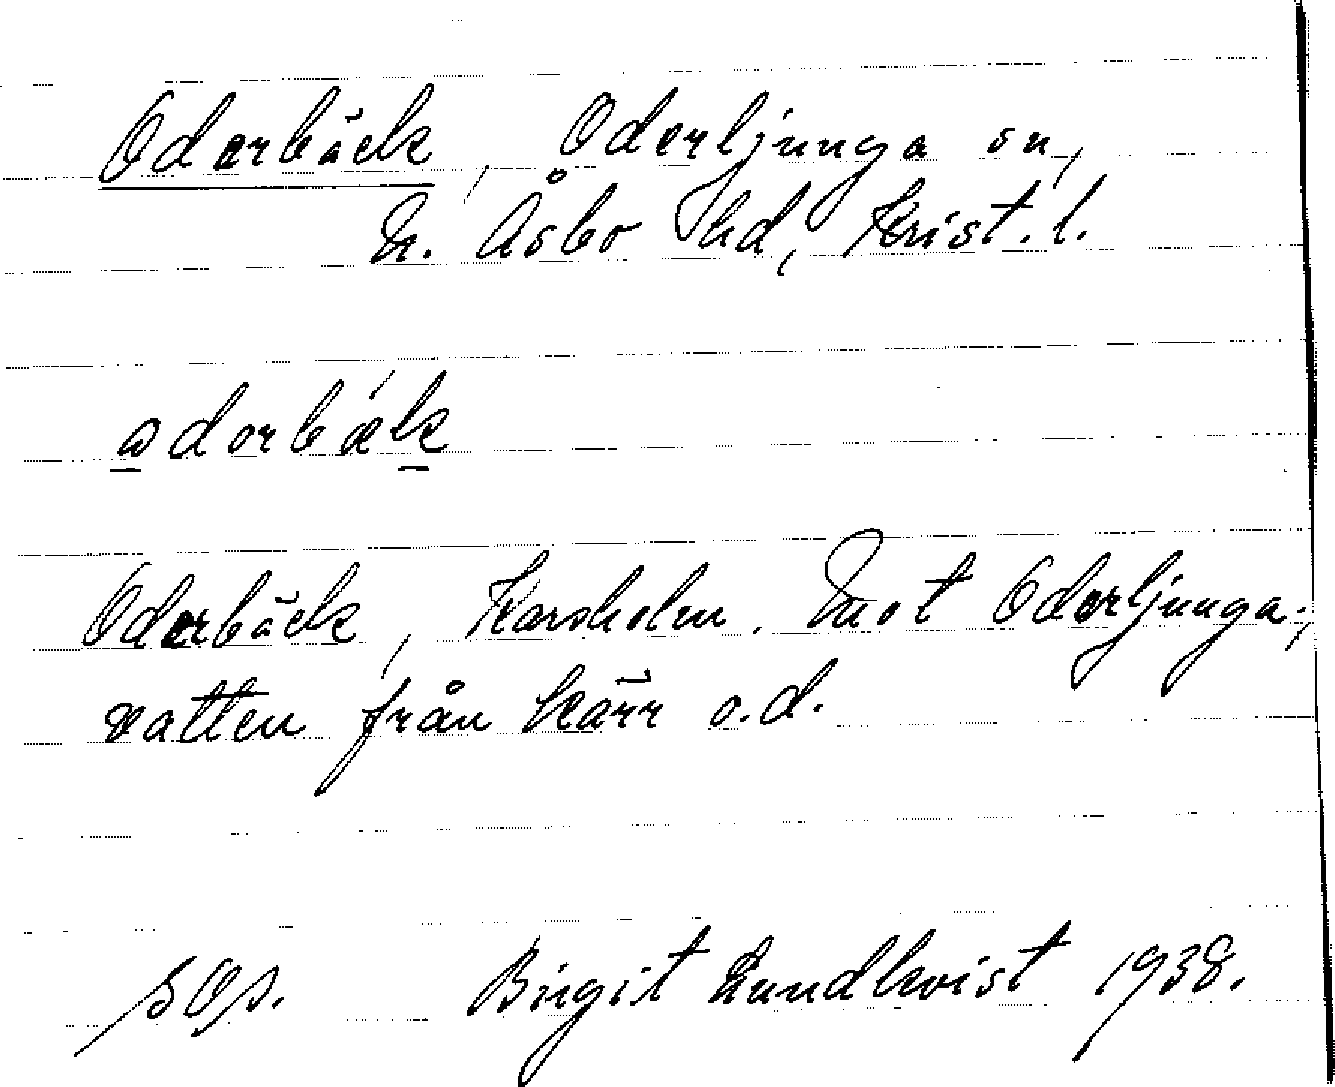 Oderbäck, Oderljunga sn,
N. Åsbo hd, Krist. l.
adorbæk
Oderbäck, Karsholm. Mot Oderljunga;
vatten från kärr o.d.
Birgit Lundkvist 1938.